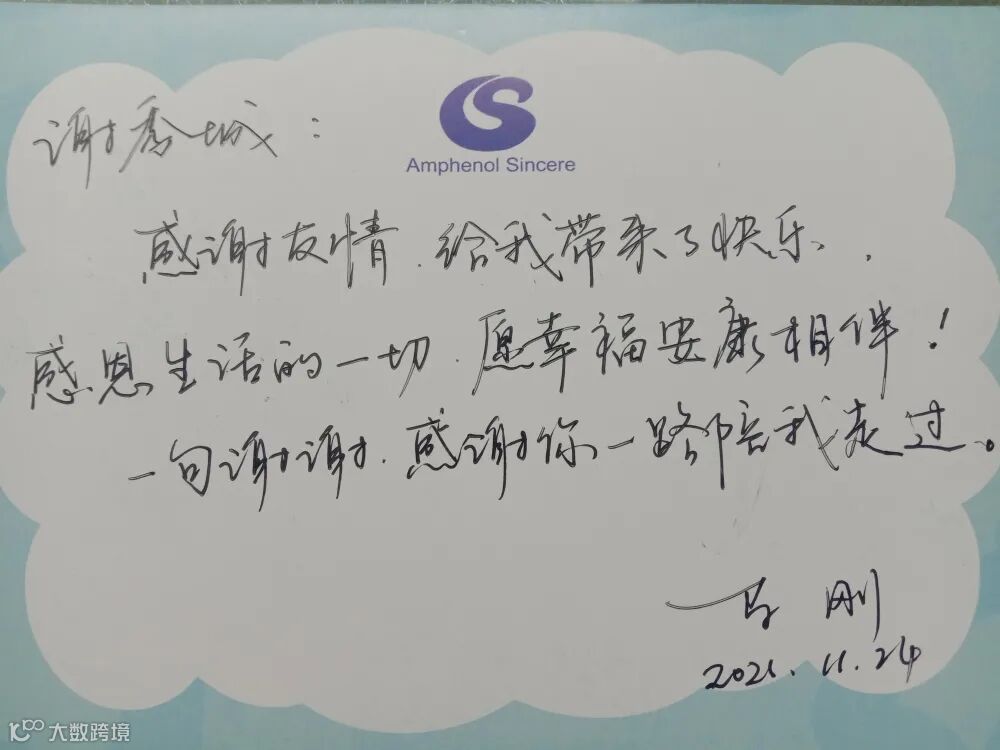 Amphenol Sincere
谢秀城：
感谢友情，给我带来了快乐，
感恩生活的一切，愿幸福安康相伴！
一句谢谢，感谢你一路陪我走过。
刚
2021.11.24
大数跨境